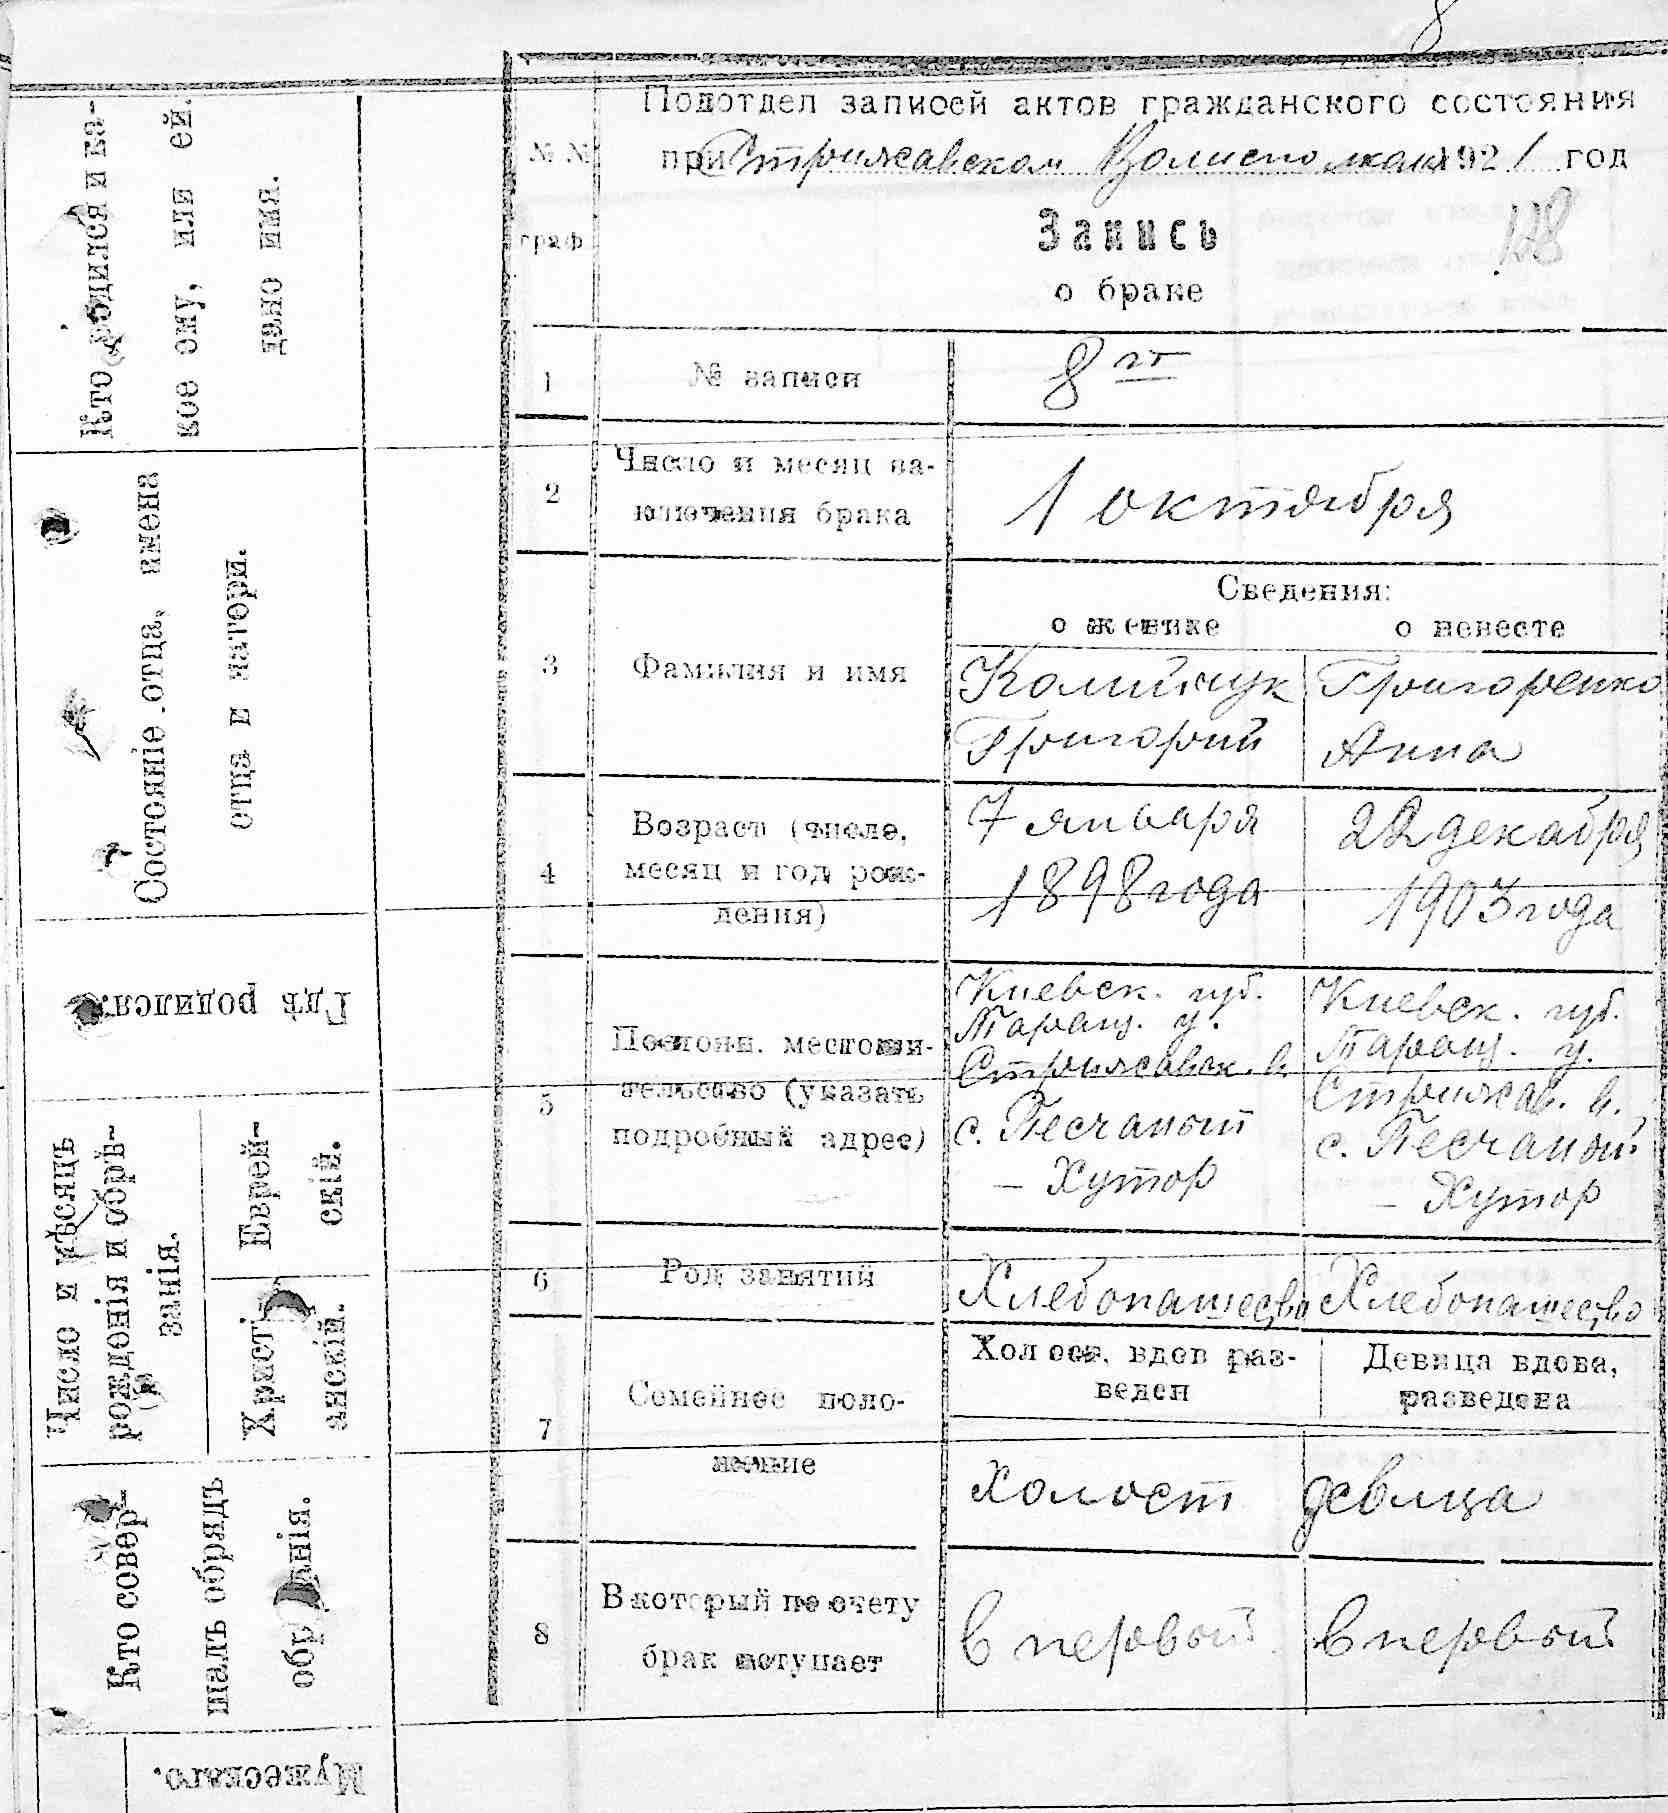 8
Подотдел записей актов гражданского состояния
при Стрижавском Волисполкоме 1921 год
№№ граф
Запись
128
о браке
1 № записи 8ой
2 Число и месяц за-
ключения брака
1 октября
Сведения:
о женихе о невесте
3 Фамилия и имя
Колийчук Григоренко
Григорий Анна
4 Возраст (число,
месяц и год рож-
дения)
7 января 22 декабря
1898 года 1903 года
5 Постоян. местожи-
тельство (указать
подробный адрес)
Киевск. губ. Киевск. губ.
Таращ. у. Таращ. у.
Стрижавск. в. Стрижав. в.
с. Песчаный с. Песчаный
- Хутор - Хутор
6 Род занятий
Хлебопашество Хлебопашество
7 Семейное поло-
жение
Холост, вдов раз- Девица вдова,
веден разведена
холост девица
8 В который по счету
брак вступает
в первый в первый
Кто родился и ка-
кое ему, или ей.
дано имя.
Состояніе отца, имена
отца и матери.
Гдѣ родился.
Число и мѣсяцъ
рожденія и обрѣ-
занія.
Еврей-
скій.
Христі-
анскій.
Кто совер-
шалъ обрядъ
обрѣзанія.
Мужескаго.